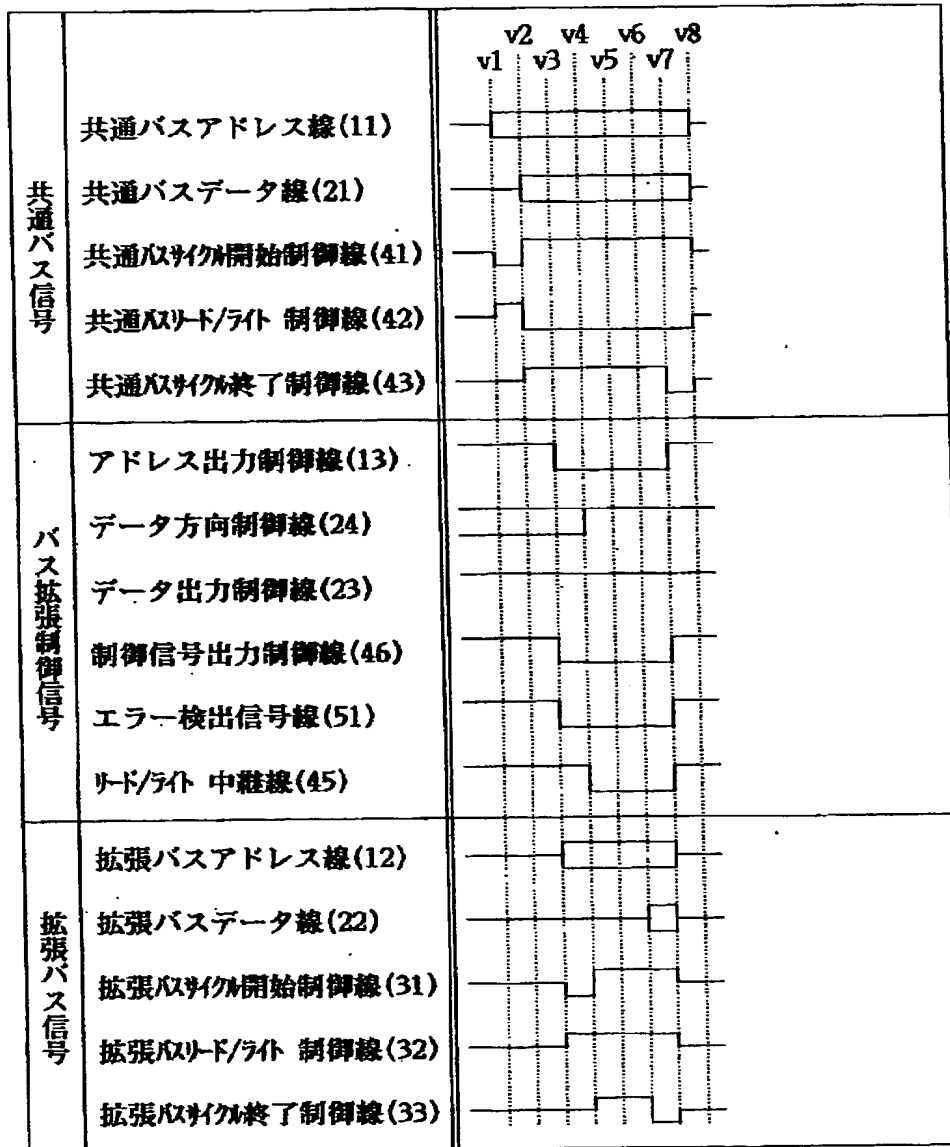 v2 v4 v6 v8
v1 v3 v5 v7
共通バス信号
共通バスアドレス線(11)
共通バスデータ線(21)
共通バスサイクル開始制御線(41)
共通バスリード/ライト 制御線(42)
共通バスサイクル終了制御線(43)
バス拡張制御信号
アドレス出力制御線(13)
データ方向制御線(24)
データ出力制御線(23)
制御信号出力制御線(46)
エラー検出信号線(51)
リード/ライト 中継線(45)
拡張バス信号
拡張バスアドレス線(12)
拡張バスデータ線(22)
拡張バスサイクル開始制御線(31)
拡張バスリード/ライト 制御線(32)
拡張バスサイクル終了制御線(33)